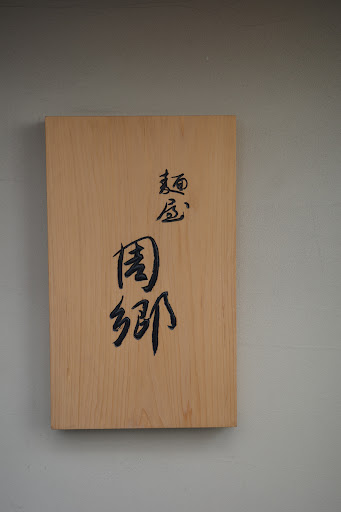 麺屋
周郷